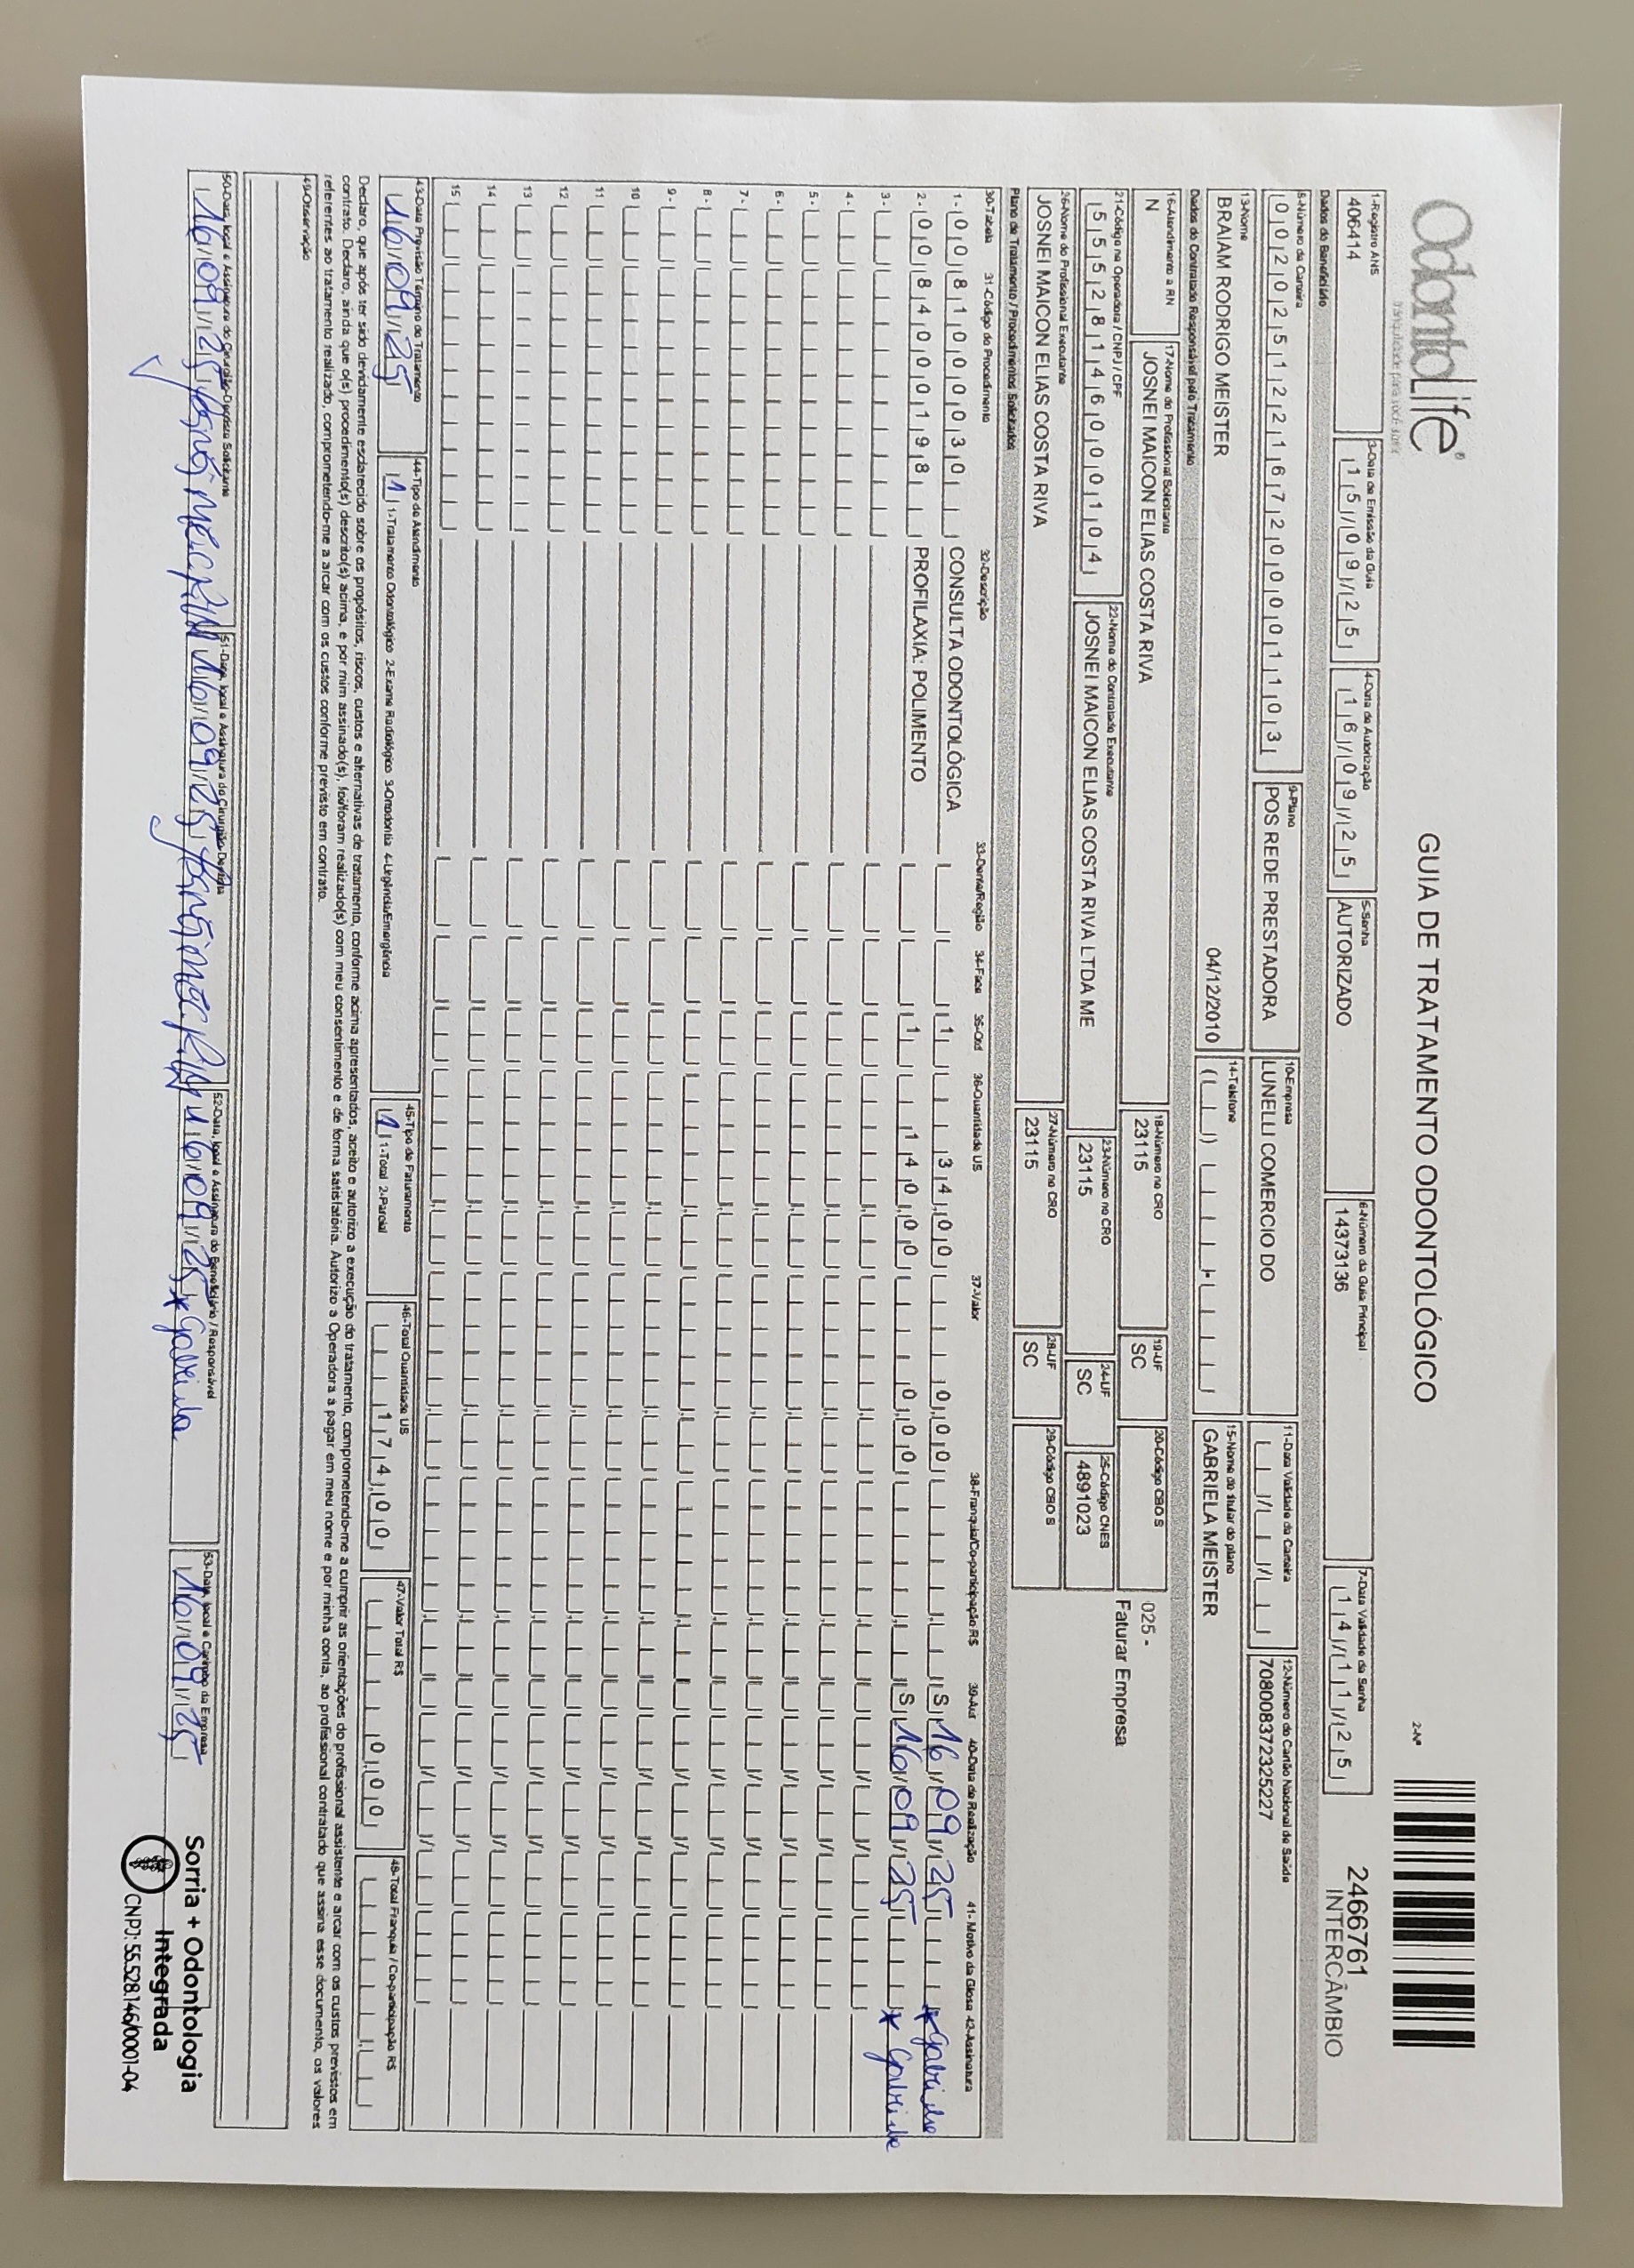 OdontoLife®
tranquilidade para você sorrir
GUIA DE TRATAMENTO ODONTOLÓGICO
2-Nº
2466761
INTERCÂMBIO
1-Registro ANS
406414
3-Data de Emissão da Guia
15/09/25
4-Data de Autorização
16/09/25
5-Senha
AUTORIZADO
6-Número da Guia Principal
14373136
7-Data Validade da Senha
14/11/25
Dados do Beneficiário
8-Número da Carteira
00202512216720000011103
9-Plano
POS REDE PRESTADORA
10-Empresa
LUNELLI COMERCIO DO
11-Data Validade da Carteira
12-Número do Cartão Nacional de Saúde
708008372325227
13-Nome
BRAIAM RODRIGO MEISTER
04/12/2010
14-Telefone
15-Nome do titular do plano
GABRIELA MEISTER
Dados do Contratado Responsável pelo Tratamento
16-Atendimento a RN
N
17-Nome do Profissional Solicitante
JOSNEI MAICON ELIAS COSTA RIVA
18-Número no CRO
23115
19-UF
SC
20-Código CBO S
025 -
Faturar Empresa
21-Código na Operadora / CNPJ / CPF
55528146000104
22-Nome do Contratado Executante
JOSNEI MAICON ELIAS COSTA RIVA LTDA ME
23-Número no CRO
23115
24-UF
SC
25-Código CNES
4891023
26-Nome do Profissional Executante
JOSNEI MAICON ELIAS COSTA RIVA
27-Número no CRO
23115
28-UF
SC
29-Código CBO S
Plano de Tratamento / Procedimentos Solicitados
30-Tabela 31-Código do Procedimento 32-Descrição 33-Dente/Região 34-Face 35-Qtd 36-Quantidade US 37-Valor 38-Franquia/Co-participação R$ 39-Aut 40-Data de Realização 41- Motivo da Glosa 42-Assinatura
1- 00 81000030 CONSULTA ODONTOLÓGICA 1 34,00 0,00 S 16/09/25 * Gabriela
2- 00 84000198 PROFILAXIA: POLIMENTO 1 140,00 0,00 S 16/09/25 * Gabriela
3-
4-
5-
6-
7-
8-
9-
10
11
12
13
14
15
43-Data Previsão Término do Tratamento
16/09/25
44-Tipo de Atendimento
1 1-Tratamento Odontológico 2-Exame Radiológico 3-Ortodontia 4-Urgência/Emergência
45-Tipo de Faturamento
1 1-Total 2-Parcial
46-Total Quantidade US
174,00
47-Valor Total R$
0,00
48-Total Franquia / Co-participação R$
Declaro, que após ter sido devidamente esclarecido sobre os propósitos, riscos, custos e alternativas de tratamento, conforme acima apresentados, aceito e autorizo a execução do tratamento, comprometendo-me a cumprir as orientações do profissional assistente e arcar com os custos previstos em
contrato. Declaro, ainda que o(s) procedimento(s) descrito(s) acima, e por mim assinado(s), foi/foram realizado(s) com meu consentimento e de forma satisfatória. Autorizo a Operadora a pagar em meu nome e por minha conta, ao profissional contratado que assina esse documento, os valores
referentes ao tratamento realizado, comprometendo-me a arcar com os custos conforme previsto em contrato.
49-Observação
50-Data, local e Assinatura do Cirurgião-Dentista Solicitante
16/09/25
51-Data, local e Assinatura do Cirurgião-Dentista
16/09/25
52-Data, local e Assinatura do Beneficiário / Responsável
16/09/25 * Gabriela
53-Data, local e Carimbo da Empresa
16/09/25
Sorria + Odontologia
Integrada
CNPJ: 55.528.146/0001-04